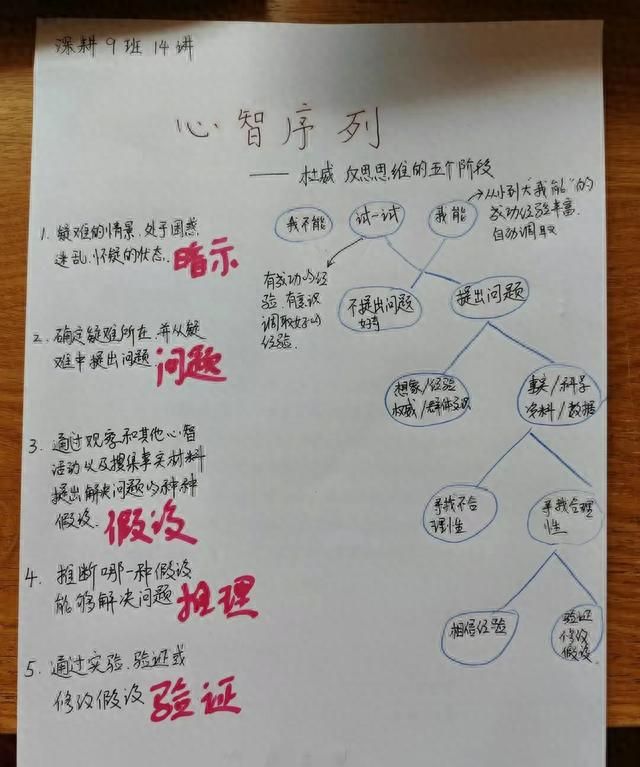 深耕9班14讲
心智序列
—— 杜威 反思思维的五个阶段
1. 疑难的情景.处于困惑.
迷乱.怀疑的状态. 暗示
2. 确定疑难所在.并从疑
难中提出问题 问题
3. 通过观察和其他心智
活动以及搜集事实材料
提出解决问题的种种
假设. 假设
4. 推断哪一种假设
能够解决问题 推理
5. 通过实验.验证或
修改假设 验证
我不能
试一试
我能
从小到大"我能"的
成功经验丰富.
自动调取
有成功的经
验.有意识
调取好的
经验.
不提出问题
提出问题
想象/经验
权威/群体意识
事实/科学
资料/数据
寻找不合
理性
寻找合理
性
相信经验
验证
修改
假设